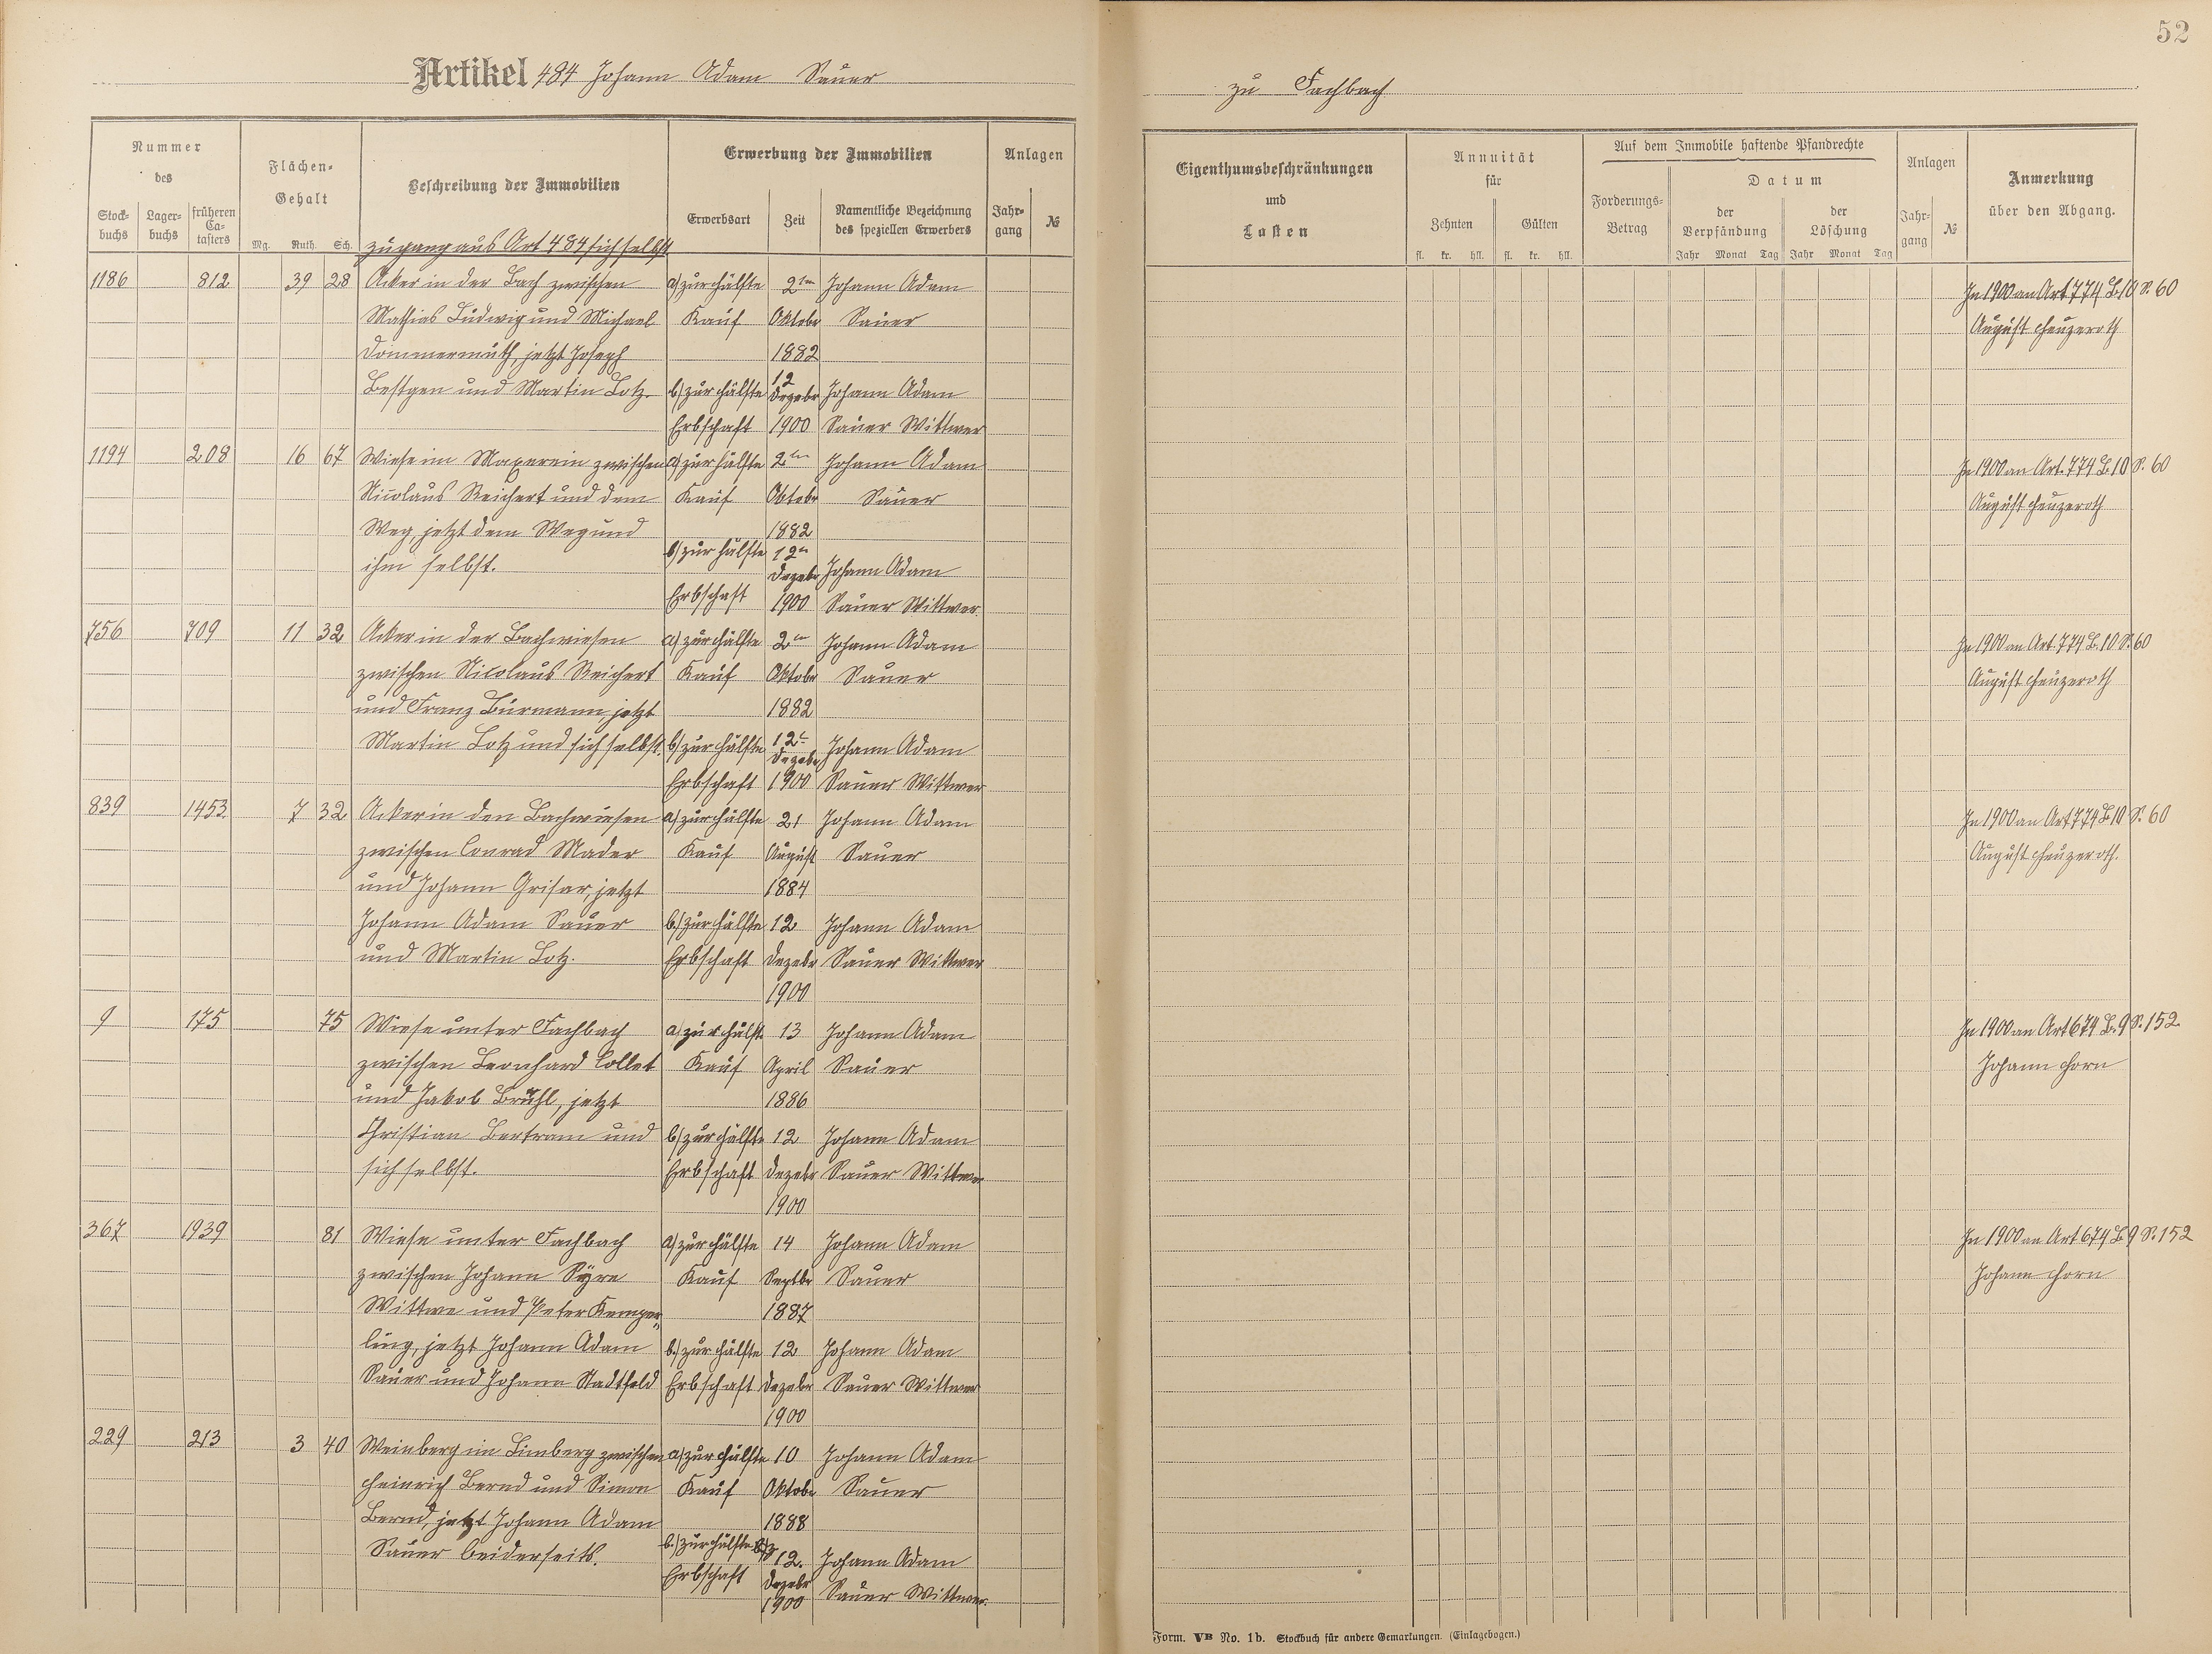 52
Artikel 484 Johann Adam Sauer
zu Fachbach
Nummer des
Stockbuchs
Lagerbuchs
früheren Catasters
Flächen-Gehalt
Mg. Ruth. Sch.
Beschreibung der Immobilien
Erwerbung der Immobilien
Erwerbsart
Zeit
Namentliche Bezeichnung des speziellen Erwerbers
Anlagen
Jahrgang
№
Eigenthumsbeschränkungen und Lasten
Annuität für
Zehnten
Gülten
fl. kr. hll. fl. kr. hll.
Auf dem Immobile haftende Pfandrechte
Forderungs-Betrag
Datum
der Verpfändung
der Löschung
Jahr Monat Tag Jahr Monat Tag
Anlagen
Jahrgang
№
Anmerkung über den Abgang.
zugang aus Art 484 sich selbst
1186 812 39 28 Acker in der Bach zwischen a) zur Hälfte 2ten Johann Adam In 1900 an Art. 774 B. 10 S. 60
Mathias Ludwig und Michael Kauf Oktobr Sauer August Heuzeroth
Dommermuth, jetzt Joseph 1882
Bestgen und Martin Lotz. b) zur Hälfte 12 Dezebr Johann Adam
Erbschaft 1900 Sauer Wittwer
1194 208 16 67 Wiese im Maxerein zwischen a) zur Hälfte 2ten Johann Adam In 1900 an Art. 774 B. 10 S. 60
Nicolaus Reichert und dem Kauf Oktobr Sauer August Heuzeroth
Weg, jetzt dem Weg und 1882
ihm selbst. b) zur Hälfte 12n Dezebr Johann Adam
Erbschaft 1900 Sauer Wittwer
756 709 11 32 Acker in der Bachwiesen a) zur Hälfte 2en Johann Adam In 1900 an Art. 774 B. 10 S. 60
zwischen Nicolaus Reichert Kauf Oktobr Sauer August Heuzeroth
und Franz Burmann, jetzt 1882
Martin Lotz und sich selbst. b) zur Hälfte 12t Dezebr Johann Adam
Erbschaft 1900 Sauer Wittwer
839 1453 7 32 Acker in den Bachwiesen a) zur Hälfte 21 Johann Adam In 1900 an Art. 774 B. 10 S. 60
zwischen Conrad Mader Kauf August Sauer August Heuzeroth.
und Johann Grisar, jetzt 1884
Johann Adam Sauer b.) zur Hälfte 12 Johann Adam
und Martin Lotz. Erbschaft Dezebr Sauer Wittwer
1900
9 175 75 Wiese unter Fachbach a) zur Hälft. 13 Johann Adam In 1900 an Art 674 B. 9 S. 152
zwischen Leonhard Collet Kauf April Sauer Johann Horn
und Jakob Brühl, jetzt 1886
Christian Bertram und b) zur Hälfte 12 Johann Adam
sich selbst. Erbschaft Dezebr Sauer Wittwer
1900
367 1939 81 Wiese unter Fachbach a) zur Hälfte 14 Johann Adam In 1900 an Art 674 B. 9 S. 152
zwischen Johann Syre Kauf Septbr Sauer Johann Horn
Wittwe und Peter Kemper- 1887
ling, jetzt Johann Adam b.) zur Hälfte 12 Johann Adam
Sauer und Johann Stadtfeld Erbschaft Dezebr Sauer Wittwer
1900
229 213 3 40 Weinberg im Limberg zwischen a) zur Hälfte 10 Johann Adam
Heinrich Bernd und Simon Kauf Oktobr Sauer
Bernd, jetzt Johann Adam 1888
Sauer beiderseits. b.) zur Hälfte 12. Johann Adam
Erbschaft Dezebr 1900 Sauer Wittwer.
Form. VB No. 1b. Stockbuch für andere Gemarkungen. (Einlagebogen.)